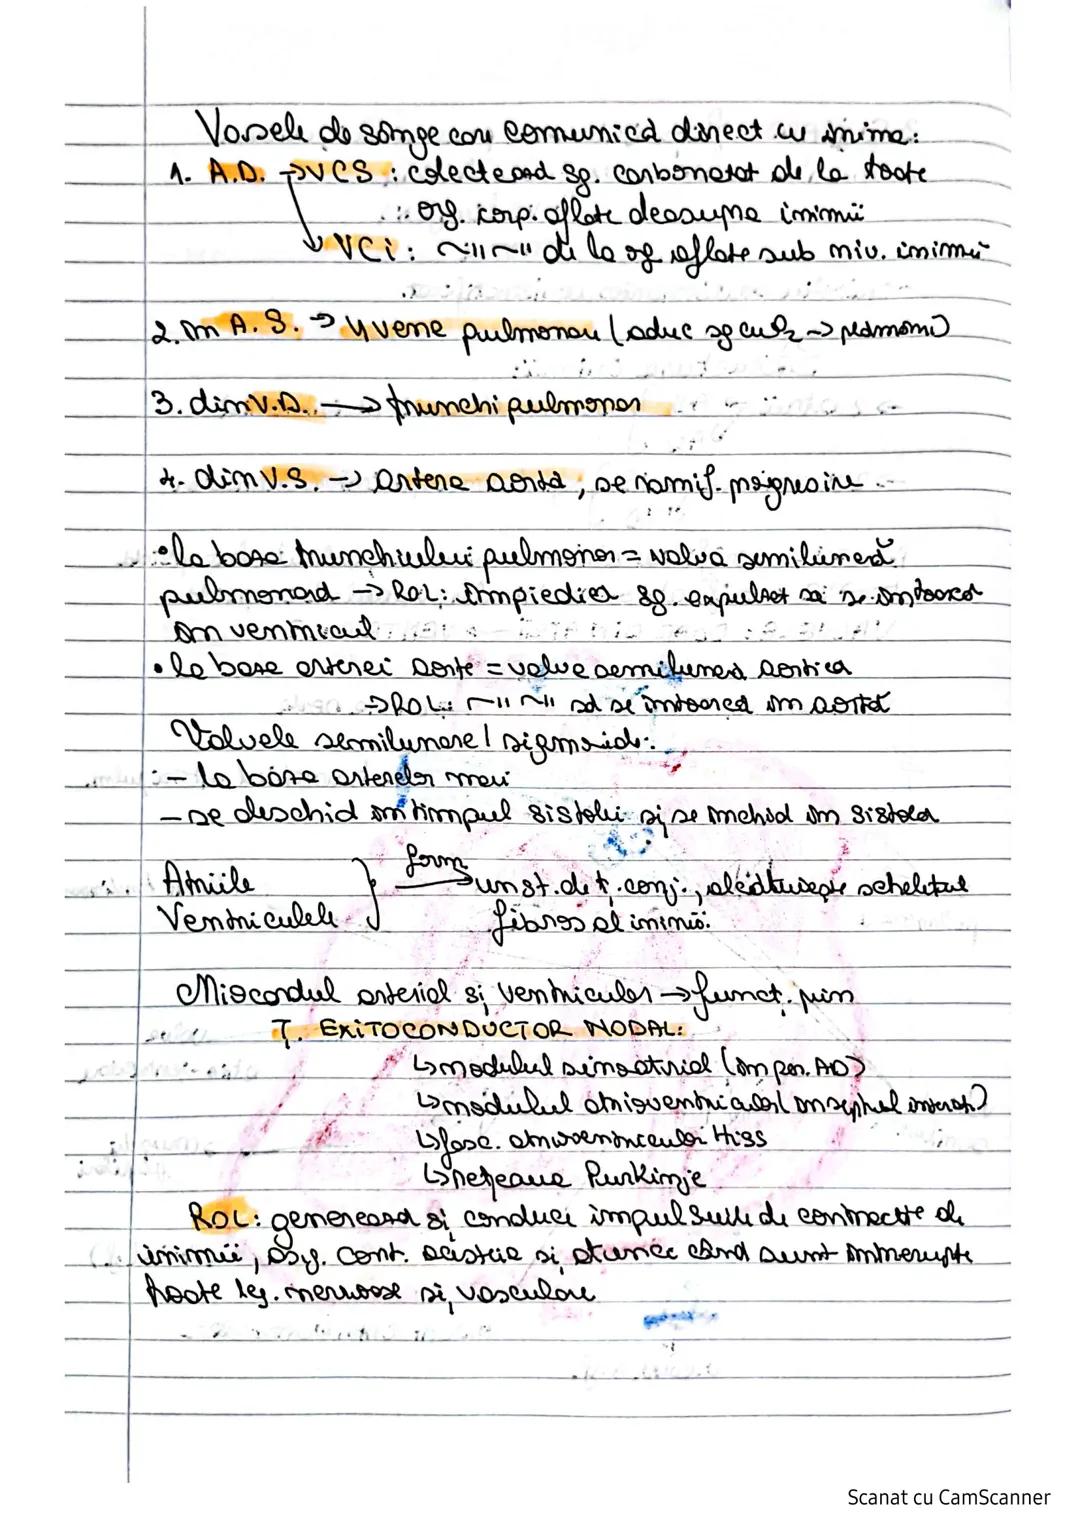 Vasele de sânge care comunică direct cu inima:
1. A.D. → VCS : colectează sg. carbonatat de la toate
org. corp. aflate deasupra inimii
↓ VCi : ~"~" de la org aflate sub niv. inimii
2. în A.S. → 4 vene pulmonare (aduc sg cu O2 → plămâni)
3. din V.D. → trunchi pulmonar
4. din V.S. → artera aortă, se ramif. progresive
• la baza trunchiului pulmonar = valvă semilunară
pulmonară → ROL: împiedică sg. expulzat să se întoarcă
în ventricul
• la baza arterei aorte = valva semilunară aortică
→ ROL: ~"~" să se întoarcă în aortă
Valvele semilunare / sigmoide:
- la baza arterelor mari
- se deschid în timpul sistolei și se închid în sistola
Atriile
Ventriculele } form → un st. de ț. conj., alcătuiește scheletul
fibros al inimii.
Miocardul arterial și ventricular → funct. prin
Ț. EXITOCONDUCTOR NODAL:
↳ nodulul sinoatrial (în per. AD)
↳ nodulul atrioventricular (în septul interatr)
↳ fasc. atrioventricular Hiss
↳ rețeaua Purkinje
ROL: generează și conduce impulsurile de contracție ale
inimii, asig. cont. acesteia și atunci când sunt întrerupte
toate leg. nervoase și vasculare
Scanat cu CamScanner